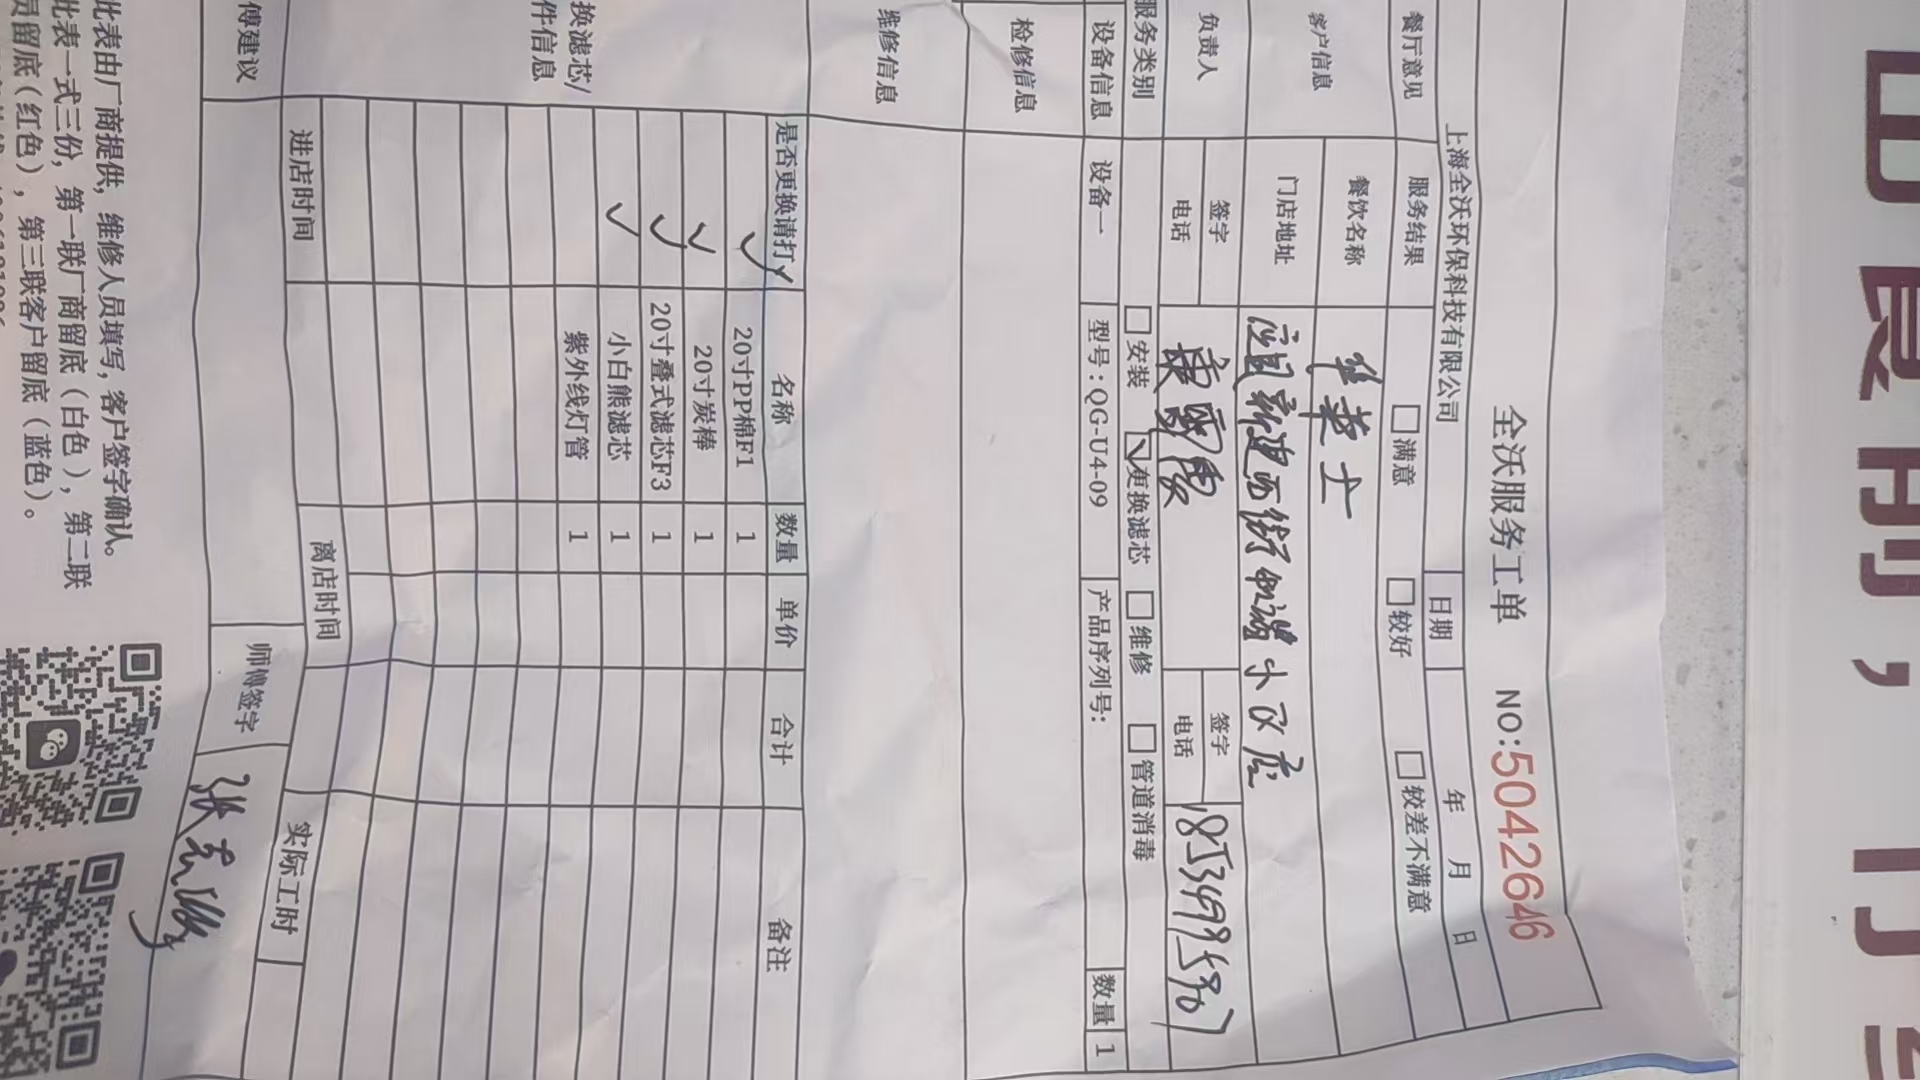 全沃服务工单 NO:5042646
上海全沃环保科技有限公司 日期 年 月 日
餐厅意见 服务结果 满意 较好 较差不满意
客户信息 餐饮名称 华莱士
门店地址 小区店
负责人 签字 签字
电话 电话
服务类别 安装 更换滤芯 维修 管道消毒
设备信息 设备一 型号:QG-U4-09 产品序列号: 数量 1
检修信息
维修信息
换滤芯/
件信息
是否更换请打✓ 名称 数量 单价 合计 备注
✓ 20寸PP棉F1 1
✓ 20寸炭棒 1
✓ 20寸叠式滤芯F3 1
✓ 小白熊滤芯 1
紫外线灯管 1
进店时间 离店时间 实际工时
傅建议 师傅签字
此表由厂商提供,维修人员填写,客户签字确认。
此表一式三份,第一联厂商留底(白色),第二联
员留底(红色),第三联客户留底(蓝色)。